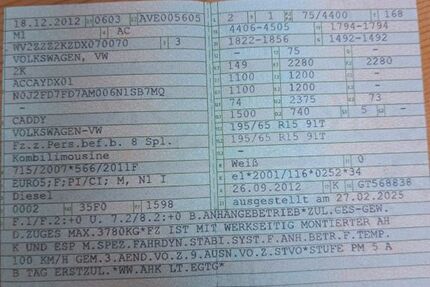 18.12.2012 0603 AVE005605
M1 AC
WV2ZZZ2KZDX070070 3
VOLKSWAGEN, VW
2K
ACCAYDX01
N0J2FD7FD7AM006N1SB7MQ
-
CADDY
VOLKSWAGEN-VW
Fz.z.Pers.bef.b. 8 Spl.
Kombilimousine
715/2007*566/2011F
EURO5;F;PI/CI; M, N1 I
Diesel
0002 35F0 1598
2 1 75/4400 168
4406-4505 1794-1794
1822-1856 1492-1492
- 75 -
149 2280 2280
1100 1200 -
1100 1200 -
74 2375 73
1500 740 5 -
195/65 R15 91T
195/65 R15 91T
-
Weiß 0
e1*2001/116*0252*34
26.09.2012 K GT568838
ausgestellt am 27.02.2025
F.1/F.2:+0 U. 7.2/8.2:+0 B.ANHANGEBETRIEB*ZUL.GES-GEW.
D.ZUGES MAX.3780KG*FZ IST MIT WERKSEITIG MONTIERTER AH
K UND ESP M.SPEZ.FAHRDYN.STABI.SYST.F.ANH.BETR.F.TEMP.
100 KM/H GEM.3.AEND.VO.Z.9.AUSN.VO.Z.STVO*STUFE PM 5 A
B TAG ERSTZUL.*WW.AHK LT.EGTG*